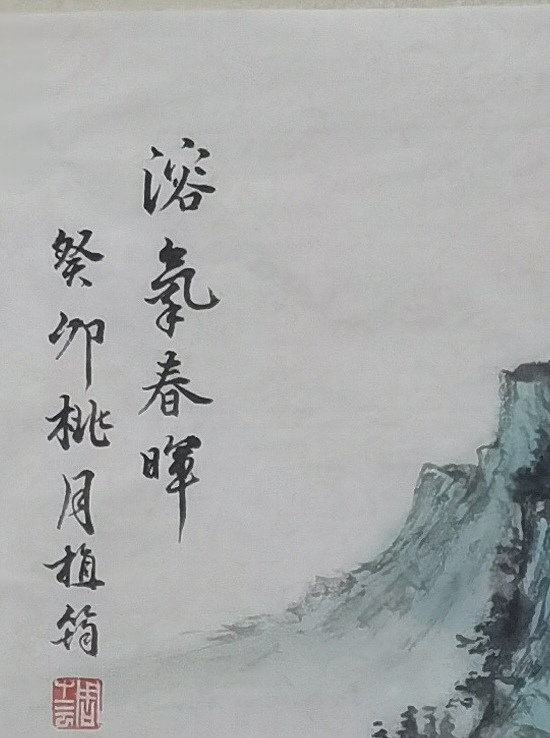 溶氣春暉
癸卯桃月植筠